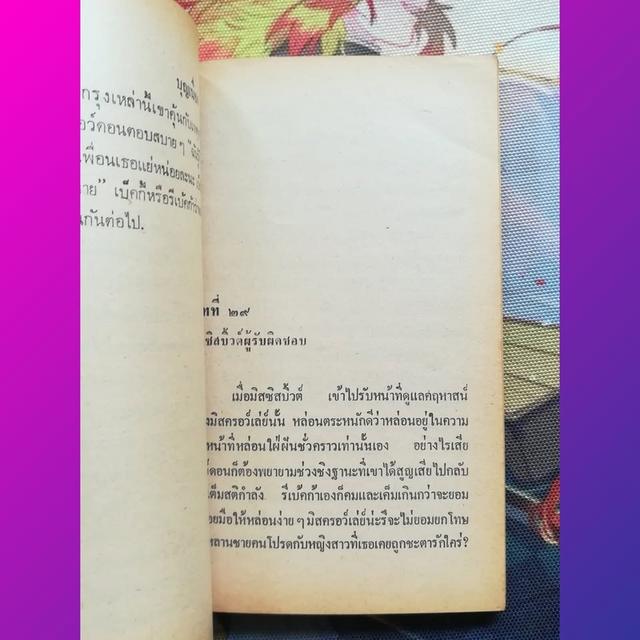 กรุงเหล่านี้เขาคุ้นกับ
ร์คอนตอบสบายๆ
เพื่อนเธอแย่หน่อยละนะ
าย” เบ็คก็หรือรีเบ้ค
นกันต่อไป.
ทที่ ๒๙
ซิสบิ้วต์ผู้รับผิดชอบ
เมื่อมิสซิสบิ้วต์ เข้าไปรับหน้าที่ดูแลคฤหาสน์
งมิสครอว์เล่ย์นั้น หล่อนตระหนักดีว่าหล่อนอยู่ในความ
หน้าที่หล่อนใฝ่ฝันชั่วคราวเท่านั้นเอง อย่างไรเสีย
์ดอนก็ต้องพยายามช่วงชิงฐานะที่เขาได้สูญเสียไปกลับ
เต็มสติกำลัง รีเบ้คก้าเองก็คมและเค็มเกินกว่าจะยอม
อยมือให้หล่อนง่ายๆ มิสครอว์เล่ย์น่ะรึจะไม่ยอมยกโทษ
หลานชายคนโปรดกับหญิงสาวที่เธอเคยถูกชะตารักใคร่?